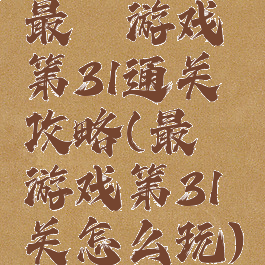 最 游戏
第31通关
攻略(最
游戏第31
关怎么玩)